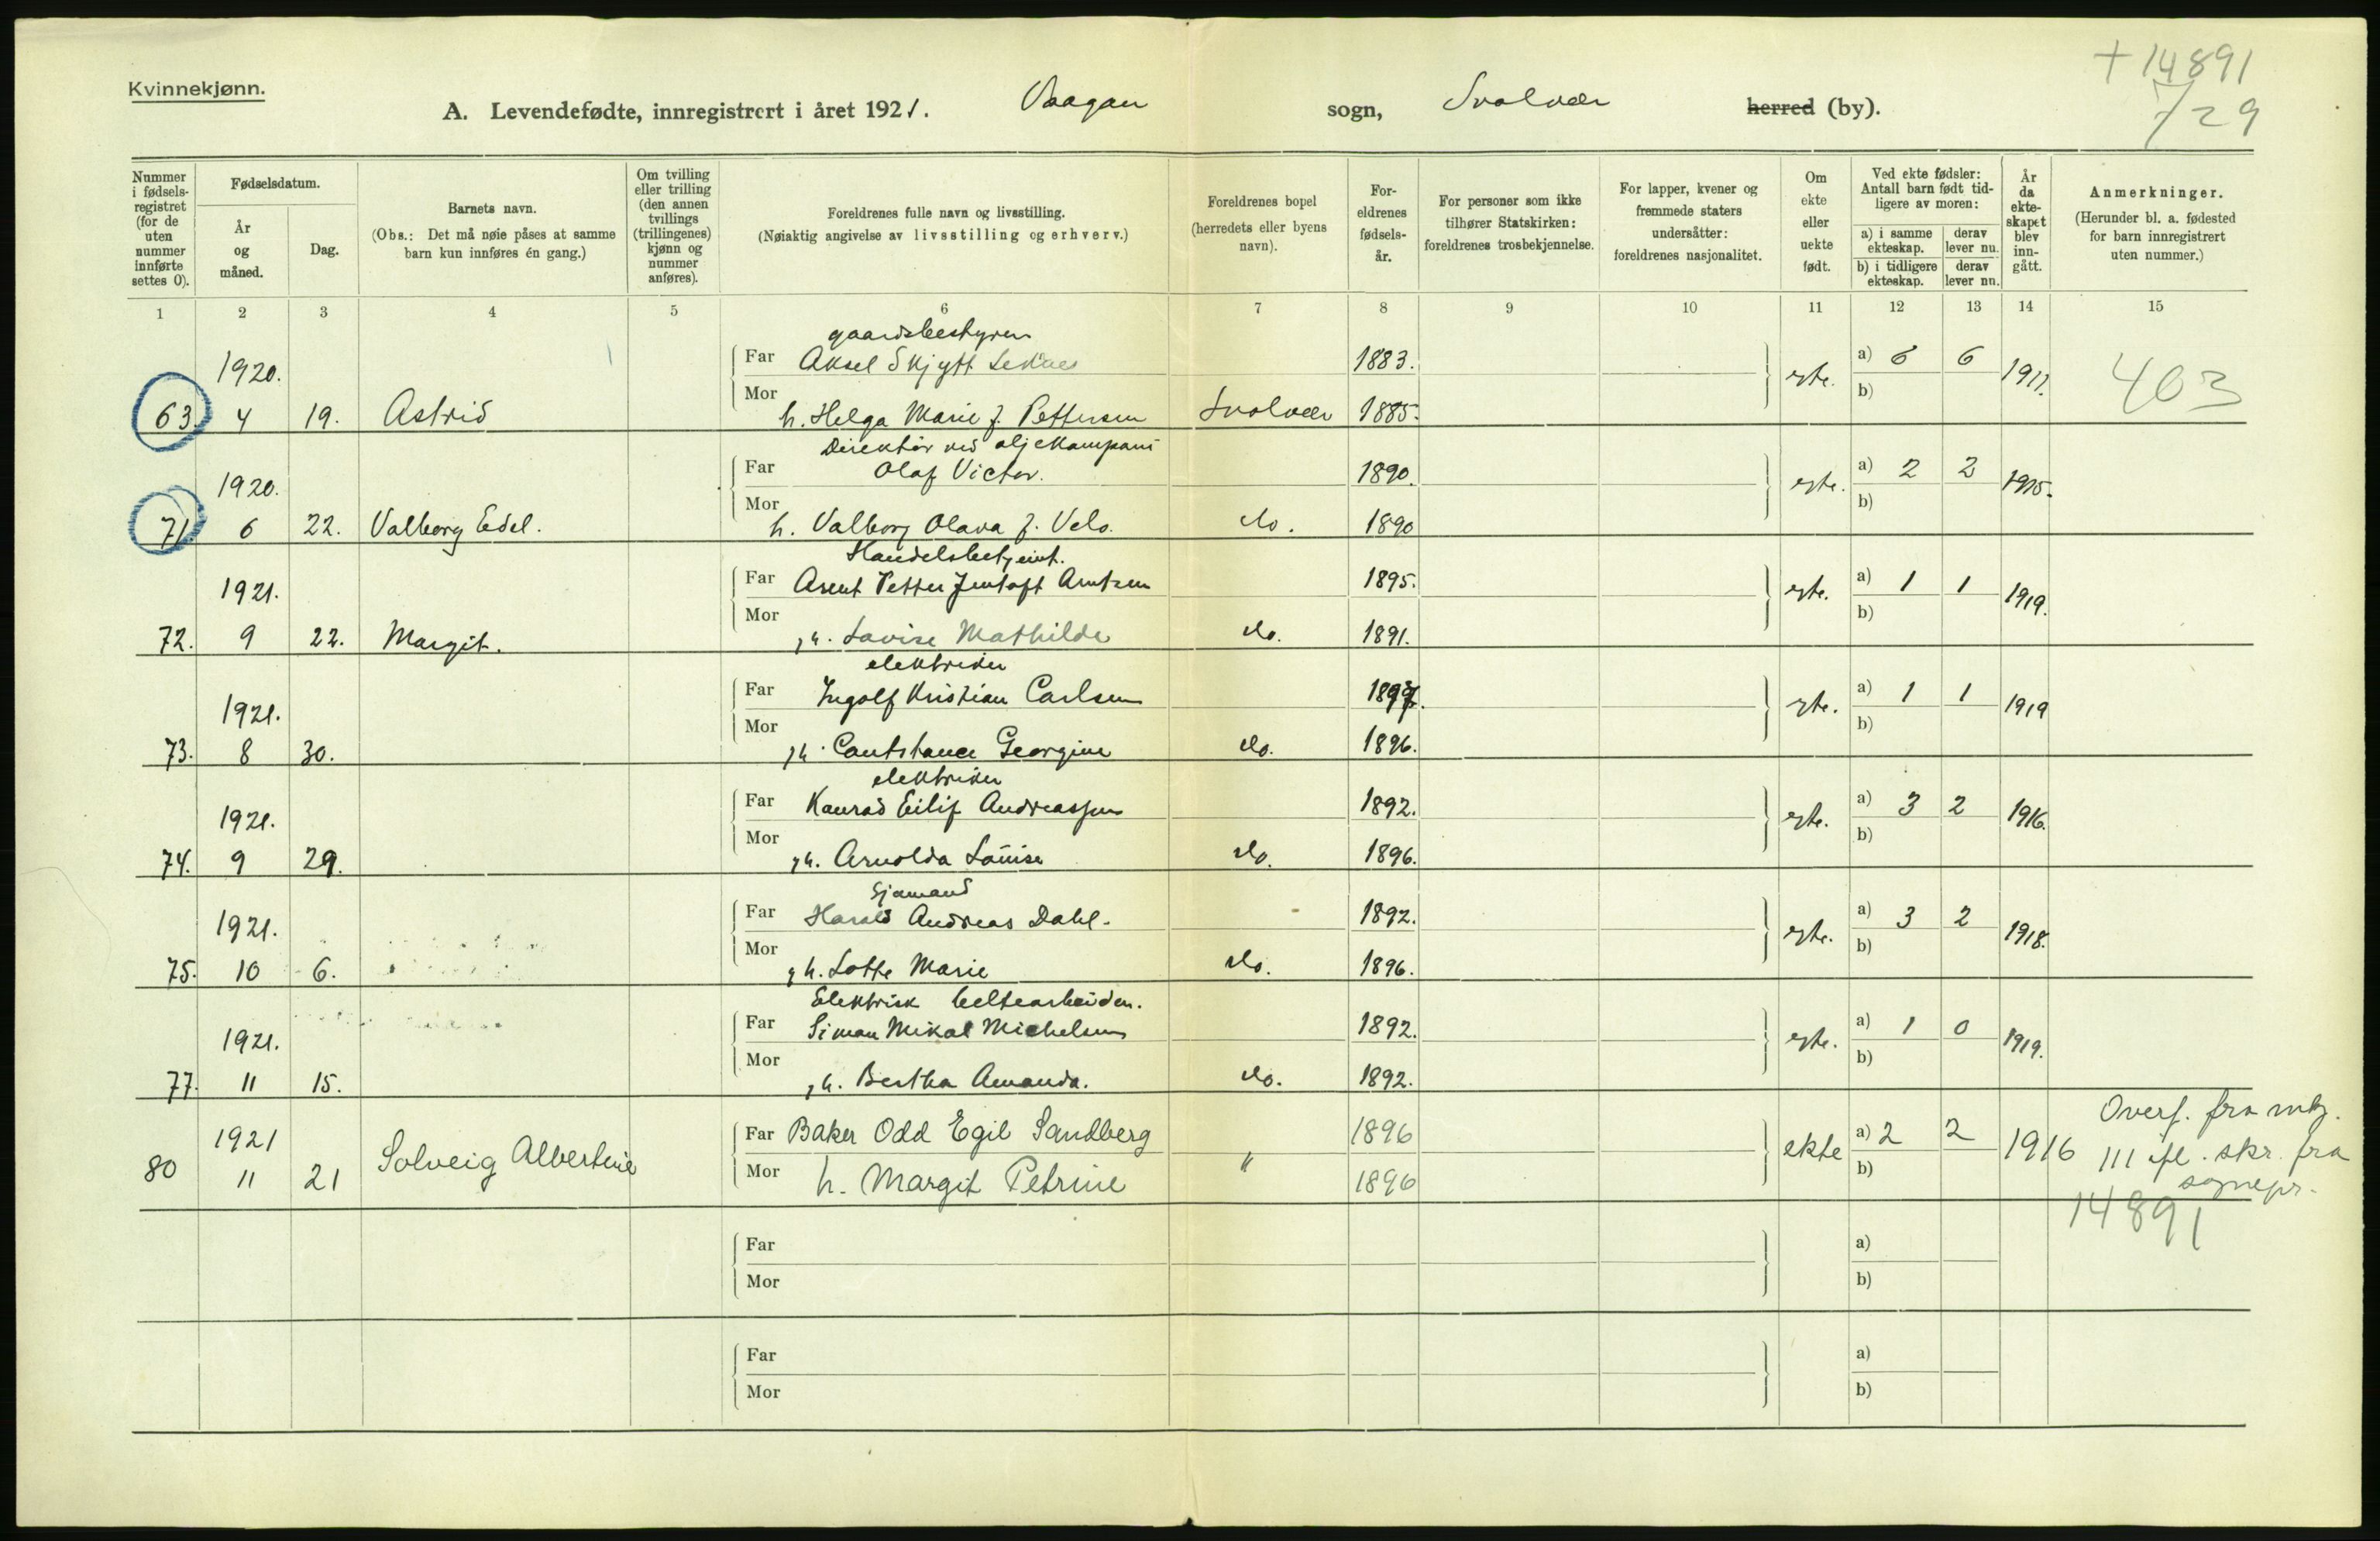 Kvinnekjønn.
A. Levendefødte, innregistrert i året 1921. Vaagan sogn, Svolvær herred (by).
+ 14891
/29
Nummer i fødsels-registret (for de uten nummer innførte settes 0).
Fødselsdatum.
År og måned.
Dag.
Barnets navn.
(Obs.: Det må nøie påses at samme barn kun innføres én gang.)
Om tvilling eller trilling (den annen tvillings (trillingenes) kjønn og nummer anføres).
Foreldrenes fulle navn og livsstilling.
(Nøiaktig angivelse av livsstilling og erhverv.)
Foreldrenes bopel (herredets eller byens navn).
For-eldrenes fødsels-år.
For personer som ikke tilhører Statskirken: foreldrenes trosbekjennelse.
For lapper, kvener og fremmede staters undersåtter: foreldrenes nasjonalitet.
Om ekte eller uekte født.
Ved ekte fødsler: Antall barn født tid-ligere av moren:
a) i samme ekteskap. derav lever nu.
b) i tidligere ekteskap. derav lever nu.
År da ekte-skapet blev inn-gått.
Anmerkninger.
(Herunder bl. a. fødested for barn innregistrert uten nummer.)
1 2 3 4 5 6 7 8 9 10 11 12 13 14 15
gaardsbestyrer
1920. Far Aksel Skjytt 1883. a) 6 6
63. 4 19. Astrid Mor h. Helga Marie f. Pettersen Svolvær 1885. ekte. b) 403
Direktør ved oljekompani
1920. Far Olaf Victor. 1890. a) 2 2 1915.
71 6 22. Valborg Edel. Mor h. Valborg Olava f. Velo. do. 1890 ekte. b)
Handelsbetjent.
1921. Far Arent Petter Jentoft Arntsen 1895. a) 1 1 1919.
72. 9 22. Margit. Mor h. Lovise Mathilde do. 1891. ekte. b)
elektriker
1921. Far Ingolf Kristian Carlsen a) 1 1 1919
73. 8 30. Mor h. Georgine do. 1896. ekte. b)
elektriker
1921. Far Konrad Eilif Andreassen 1892. a) 3 2 1916.
74. 9 29. Mor h. Arnolda Louise do. 1896. ekte. b)
Sjømand
1921. Far Harald Andreas Dahl. 1892. a) 3 2 1918.
75. 10 6. Mor h. Lotte Marie do. 1896. ekte. b)
Elektrisk
1921. Far Simon Mikal Michelsen 1892. a) 1 0 1919.
77. 11 15. Mor h. Bertha Amanda. do. 1892. ekte. b)
1921 Far Baker Odd Egil Sandberg 1896 a) 2 2 1916 Overf. fra mk.
80 11 21 Solveig Albertine Mor h. Margit Petrine " 1896 ekte b) III ifl. skr. fra sognepr.
14891
Far a)
Mor b)
Far a)
Mor b)